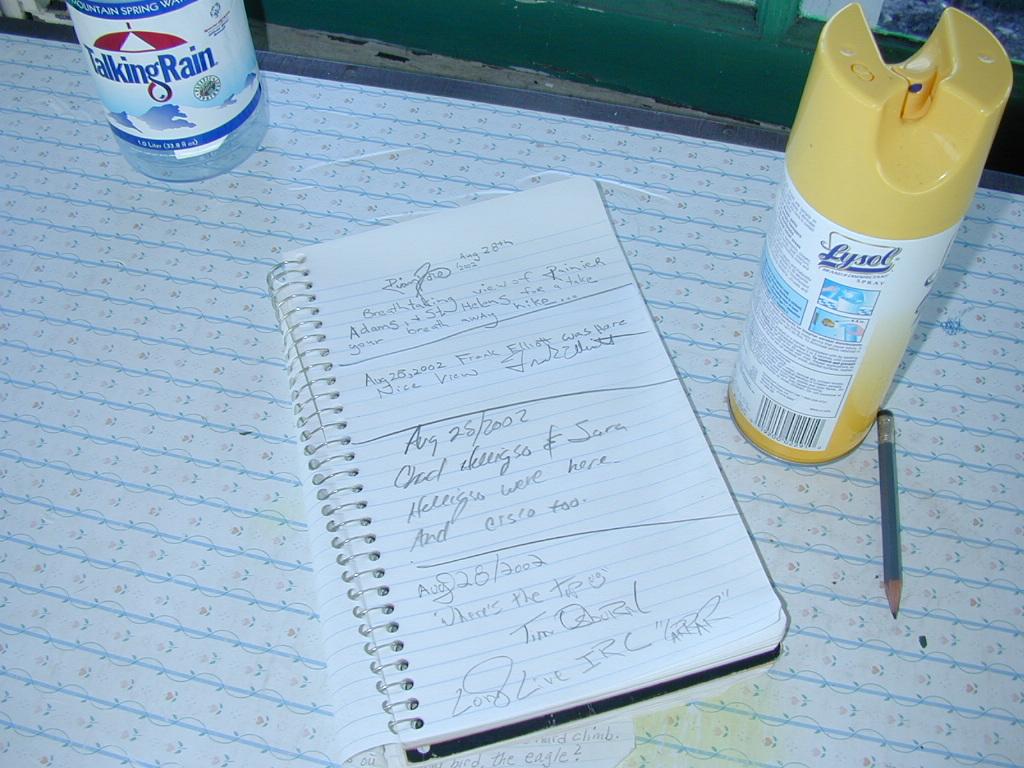 MOUNTAIN SPRING WA
TalkingRain
1.0 Liter (33.8 fl oz)
Lysol
SPRAY
Aug 28th
2002
Breathtaking view of Rainier
Adams, & St Helens for a take
your breath away hike...
Aug 28, 2002 Frank Elliott was here
Nice View
Aug 28/2002
Chad Hellwgso & Sara
Hellwgso were here
And cisco too.
Aug 28/2002
Where's the TP?
Tim Osburn
Long Live IRC
hard climb.
bird, the eagle?